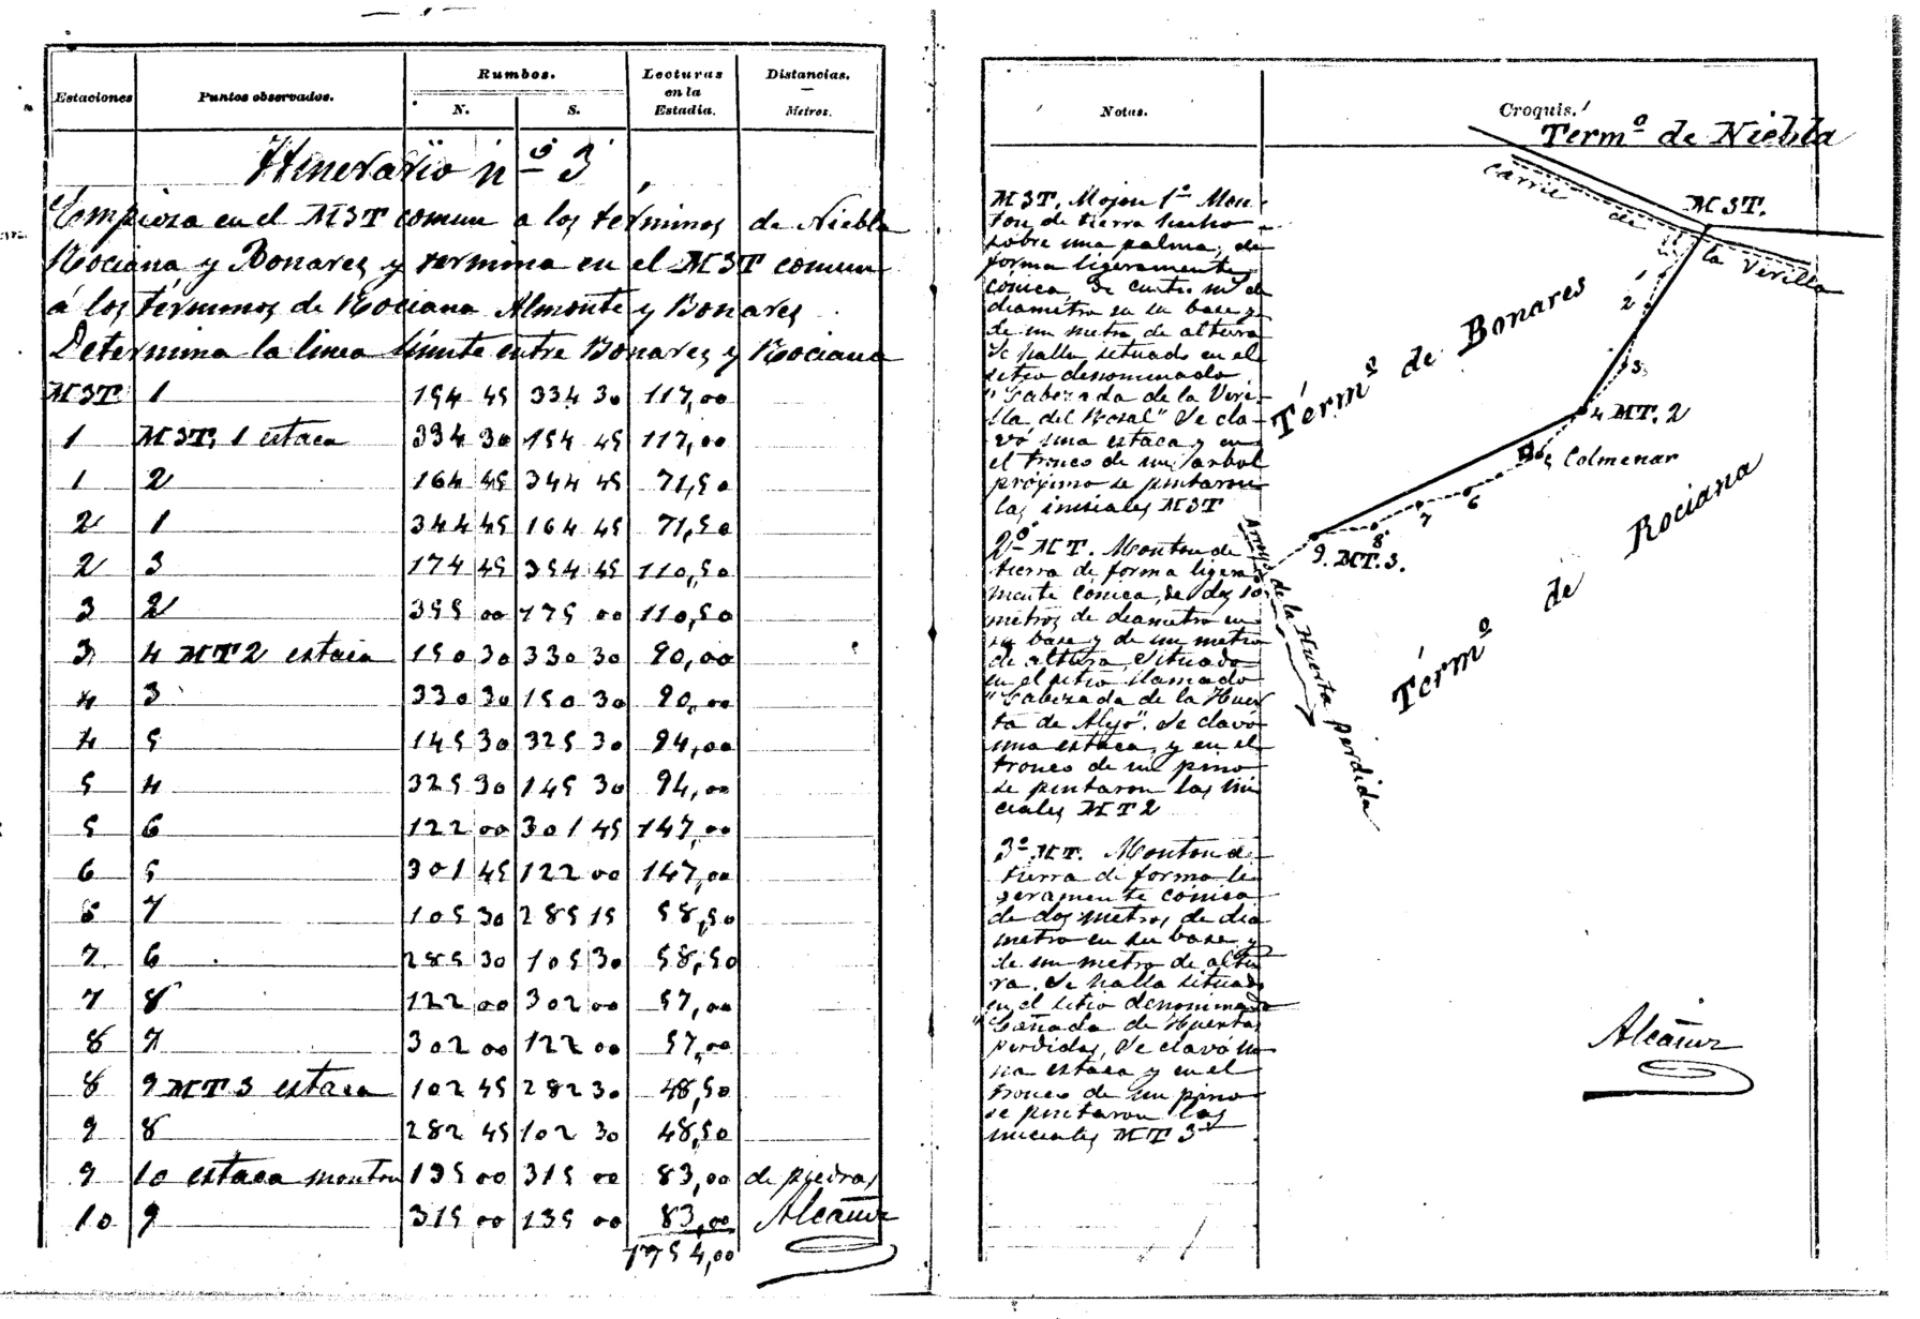 Estaciones Puntos observados. Rumbos. Lecturas en la Estadia. Distancias. Metros.
N. S.
Itinerario nº 3
Empieza en el M3T comun a los términos de Niebla
Rociana y Bonares y termina en el M3T comun
á los términos de Rociana Almonte y Bonares
Determina la linea límite entre Bonares y Rociana
M3T 1 154 45 334 30 117,00
1 M3T, 1 estaca 334 30 154 45 117,00
1 2 164 45 344 45 71,50
2 1 344 45 164 45 71,50
2 3 174 45 354 45 110,50
3 2 355 00 175 00 110,50
3 4 MT2 estaca 150 30 330 30 90,00
4 3 330 30 150 30 90,00
4 5 145 30 325 30 94,00
5 4 325 30 145 30 94,00
5 6 122 00 301 45 147,00
6 5 301 45 122 00 147,00
6 7 105 30 285 15 58,50
7 6 285 30 105 30 58,50
7 8 122 00 302 00 57,00
8 7 302 00 122 00 57,00
8 9 MT 3 estaca 102 45 282 30 48,50
9 8 282 45 102 30 48,50
9 10 estaca monton 135 00 315 00 83,00 de piedras
10 9 315 00 135 00 83,00 Alcañiz
1754,00
Notas. Croquis.
M3T. Mojon 1º Mon-
ton de tierra hecho
sobre una palma, de
forma ligeramente
cónica, de cuatro m de
diametro en su base y
de un metro de altura
Se halla situado en el
sitio denominado
"Cabezada de la Veri-
lla del Rosal" Se cla-
vó una estaca y en
el tronco de un arbol
próximo se pintaron
las iniciales M3T
2º MT. Monton de
tierra de forma ligera
mente cónica, de dos
metros de diametro en
su base y de un metro
de altura, situado
en el sitio llamado
"Cabezada de la Huer
ta de Alejo". Se clavó
una estaca, y en el
tronco de un pino
se pintaron las ini
ciales MT2
3º MT. Monton de
tierra de forma li
geramente cónica
de dos metros de dia
metro en su base y
de un metro de altu
ra. Se halla situado
en el sitio denominado
"Cañada de Huertas
perdidas, Se clavó u
na estaca y en el
tronco de un pino
se pintaron las
iniciales MT 3
Termº de Niebla
Carril de la Verilla
M3T.
1
2
3
4 MT. 2
5 Colmenar
6
7
8
9. MT. 3.
Térmº de Bonares
Térmº de Rociana
Arroyo de la Huerta perdida
Alcañiz